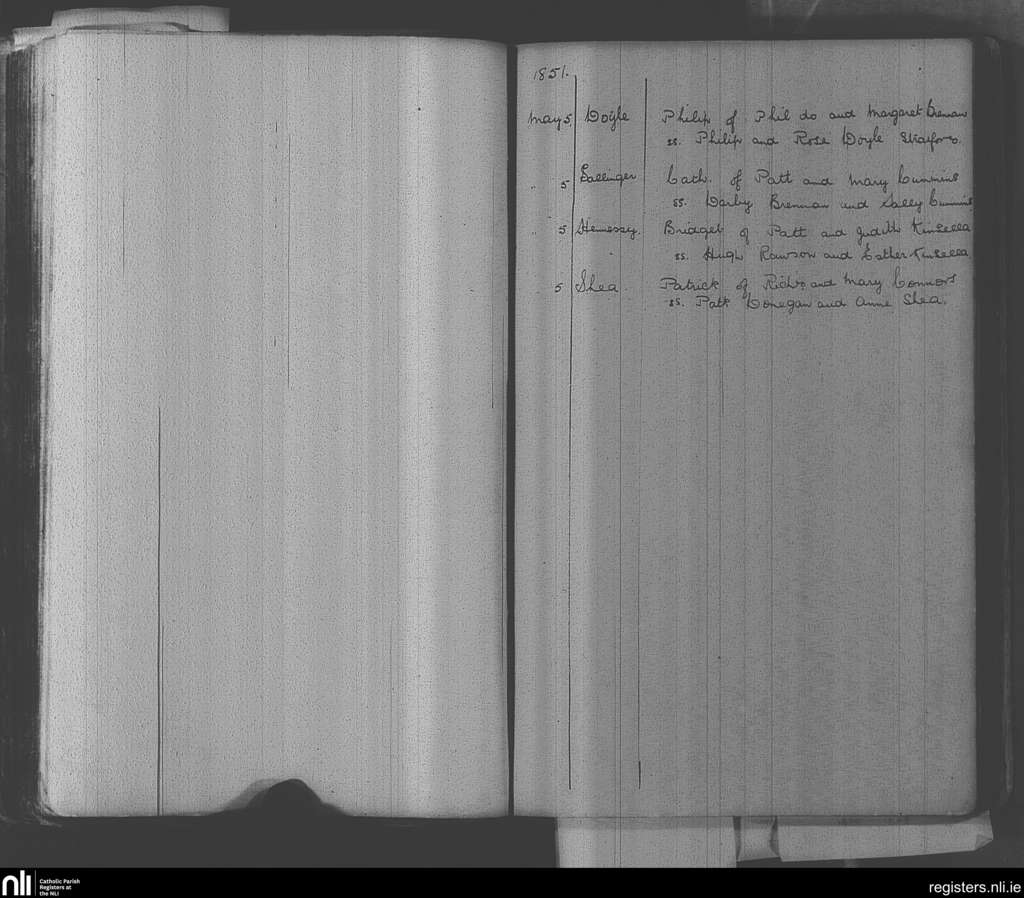 1851.
May 5. Doyle Philip of Phil do and Margaret Brennan
ss. Philip and Rose Doyle
" 5 Cath. of Patt and Mary Cummins
ss. Darby Brennan and Sally Cummins
" 5 Hennessy. Bridget of Patt and Judith Kinsella
ss. Hugh Rawson and Esther Kinsella
" 5 Shea. Patrick of Richd and Mary Connors
ss. Patk Donegan and Anne Shea.
nli Catholic Parish
Registers at
the NLI
registers.nli.ie